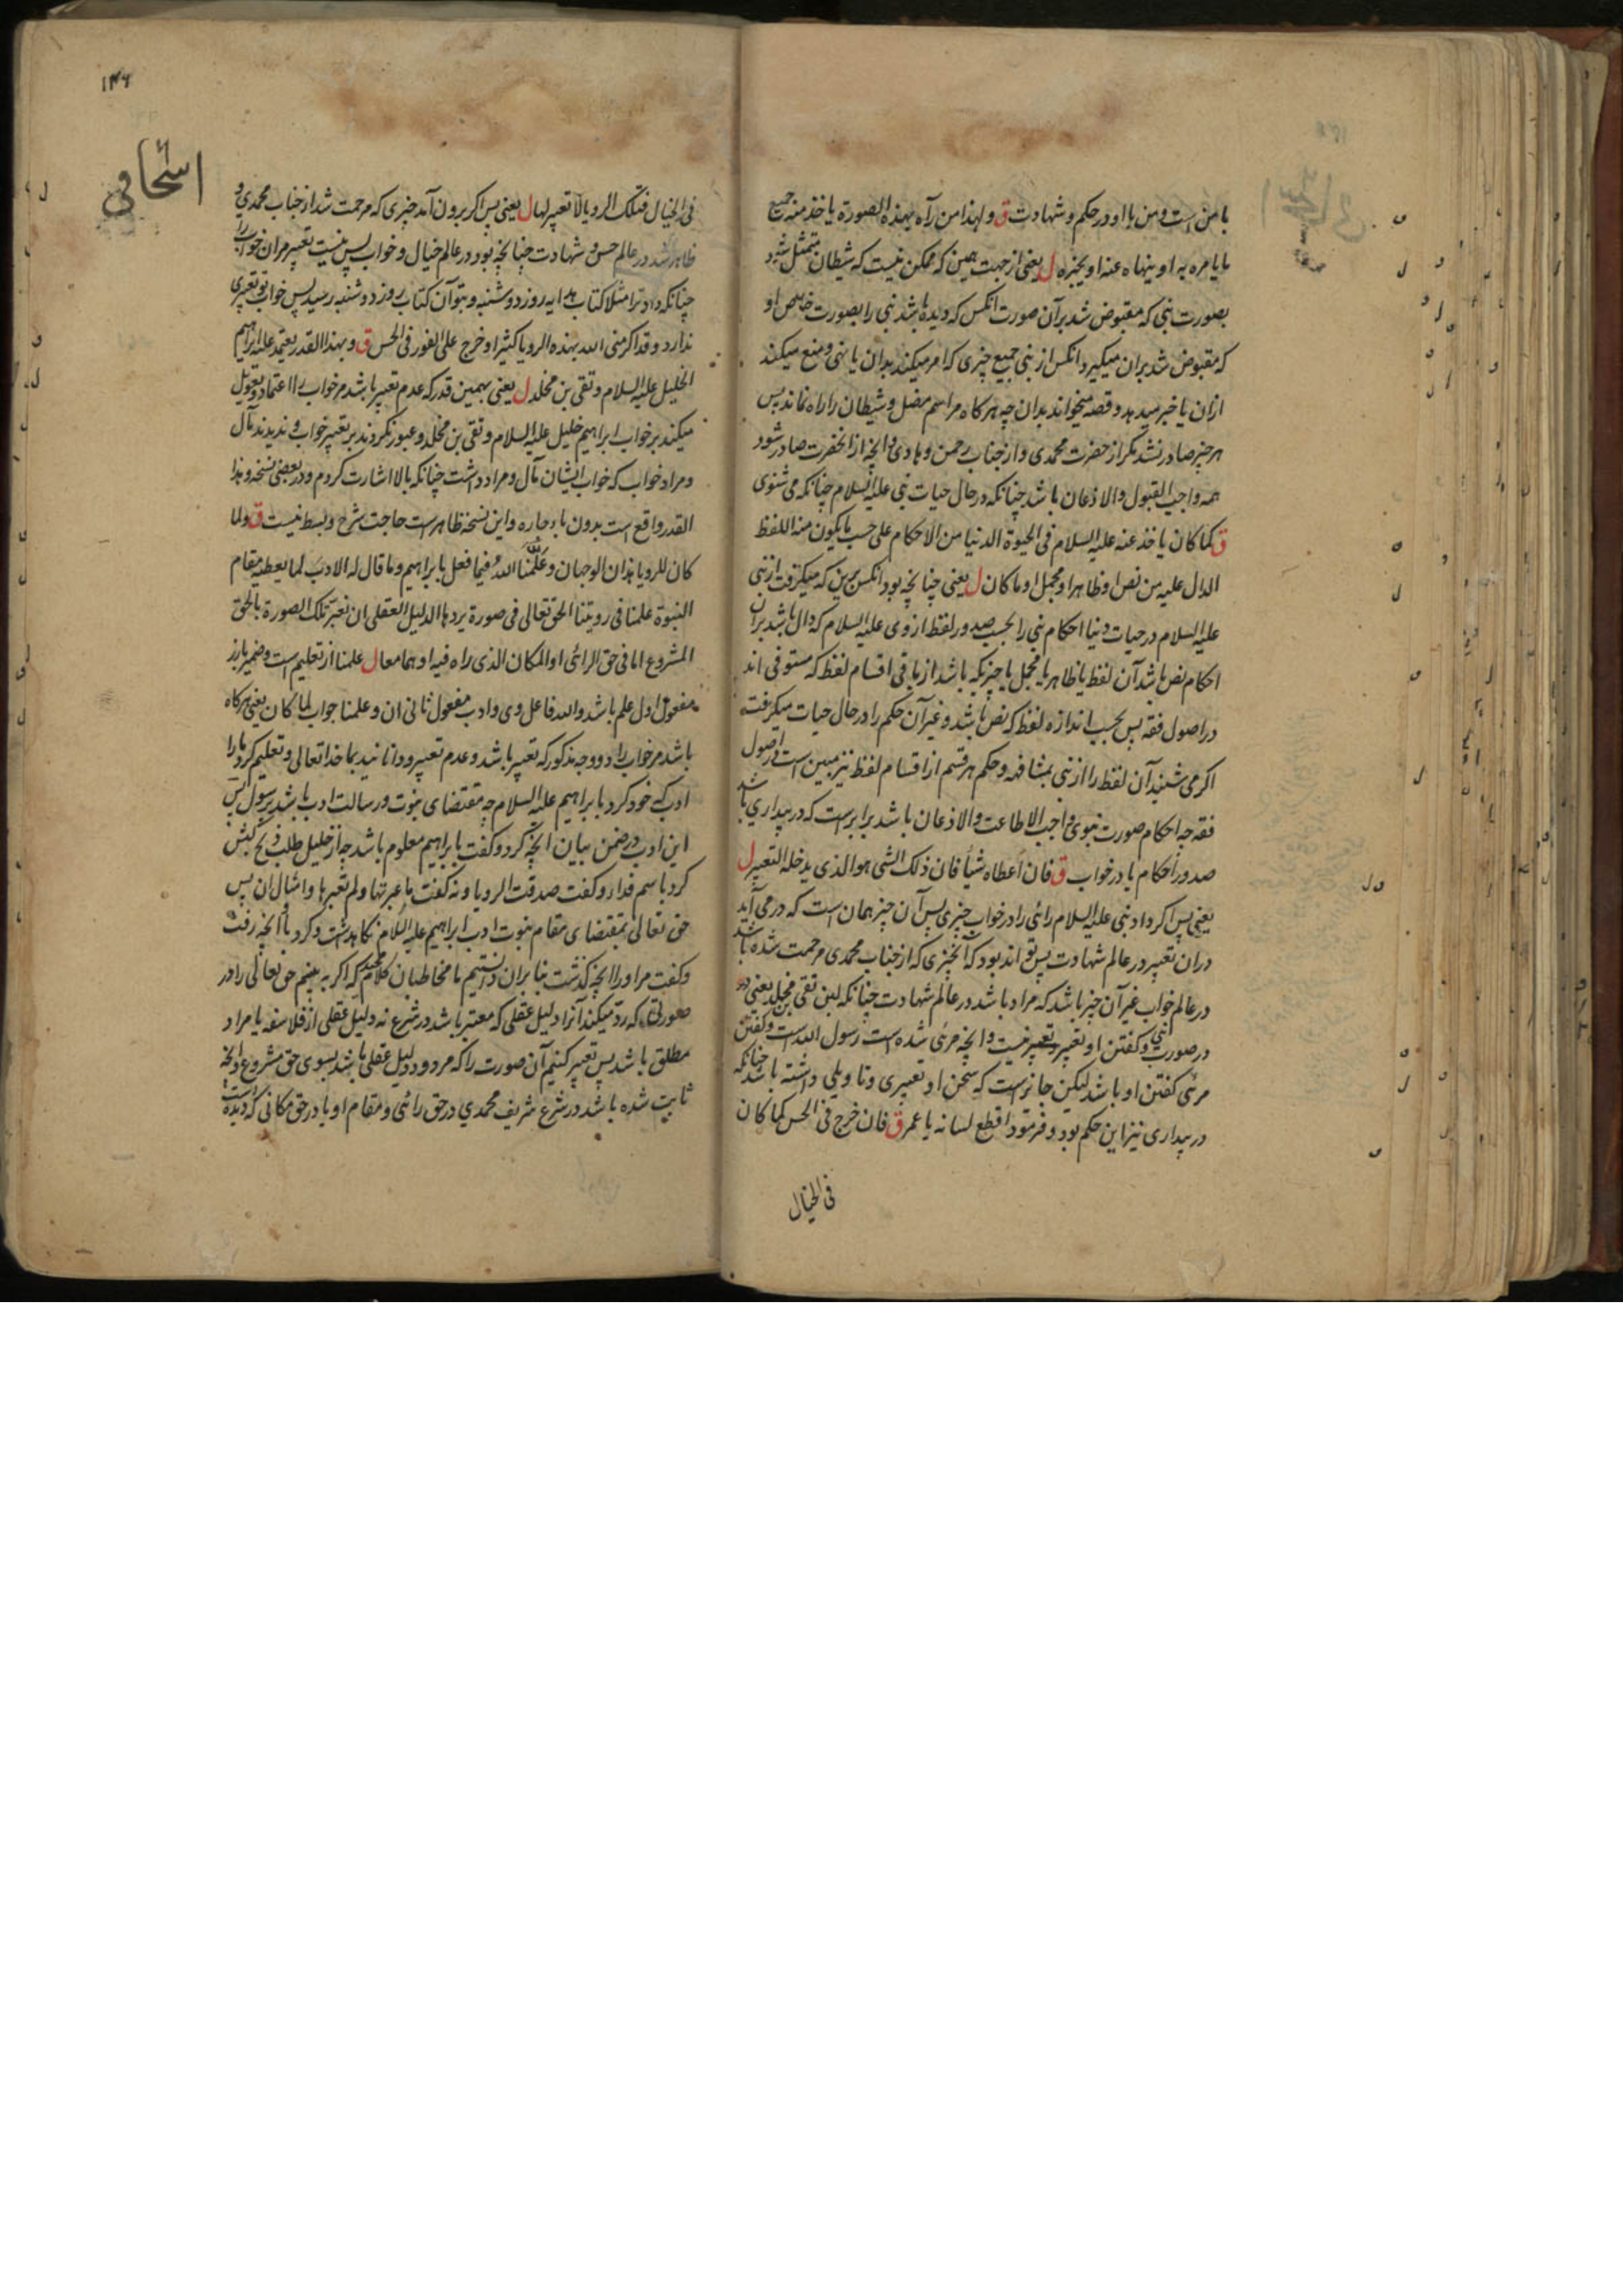 با من است و من با او در حکم و شهادت ق و لهذا من رآه بهذه الصورة یاخذ منه جمیع
ما یامره به او ینهاه عنه او یخبره ل یعنی از جهت همین که ممکن نیست که شیطان متمثل شود
بصورت نبی که مقبوض شد بر آن صورت انکس که دیده باشد نبی را بصورت خاص او
که مقبوض شد بران میکیرد انکس از نبی جمیع چیزی که امر میکند بدان یا نهی و منع میکند
ازان یا خبر میدهد و قصه میخواند بدان چه هرکاه مر اسم مضل و شیطان را راه نماند پس
هر خبر صادر نشد مکر از حضرت محمدی و از جناب رحمن و هادی و انچه از انحضرت صادر شود
همه واجب القبول والاذعان باشد چنانکه در حال حیات نبی علیه السلام چنانکه می شنوی
ق کما کان یاخذ عنه علیه السلام فی الحیوة الدنیا من الاحکام علی حسب ما یکون منه اللفظ
الدال علیه من نص او ظاهر او مجمل او ما کان ل یعنی چنانچه بود انکس برین که میکرفت از نبی
علیه السلام در حیات دنیا احکام نبی را بحسب صدور لفظ از وی علیه السلام که دال باشد بران
احکام نص باشد آن لفظ یا ظاهر یا مجمل یا چیزیکه باشد از باقی اقسام لفظ که مستوفی اند
در اصول فقه پس بحسب اندازه لفظ که نص باشد و غیر آن حکم را در حال حیات میکرفت
اکر می شنید آن لفظ را از نبی بمشافهه و حکم هر قسم از اقسام لفظ نیز مبین است در اصول
فقه چه احکام صورت نبوی واجب الاطاعت والاذعان باشد برابرست که در بیداری باشد
صدور احکام یا در خواب ق فان اعطاه شیأ فان ذلک الشی هو الذی یدخله التعبیر ل
یعنی پس اکر داد نبی علیه السلام رائی را در خواب چیزی پس آن چیز همان است که در می آید
دران تعبیر در عالم شهادت پس تواند بود که آن چیزی که از جناب محمدی مرحمت شده باشد
در عالم خواب غیر آن چیز باشد که مراد باشد در عالم شهادت چنانکه لبن تقی بن مخلد یعنی در
در صورت نبی و کفتن او تعبیر نیست و انچه مرئی شده است رسول الله است و کفتن
مرئی کفتن او باشد لیکن جائزست که سخن او تعبیری و تاویلی داشته باشد چنانکه
در بیداری نیز این حکم بود و فرمود اقطع لسانه یا عمر ق فان خرج فی الحس کما کان
فی الخیال
۱۴۶
اسحاقی
فی الخیال فتلک الرویا لا تعبیر لها ل یعنی پس اکر برون آمد چیزی که مرحمت شد از جناب محمدی و
ظاهر شد در عالم حس و شهادت چنانچه بود در عالم خیال و خواب پس نیست تعبیر مران خواب را
چنانکه داد ترا مثلا کتاب هدایه روز دوشنبه و بتو آن کتاب روز دوشنبه رسید پس خواب تو تعبیری
ندارد و قد اکرمنی الله بهذه الرویا کثیرا و خرج علی الفور فی الحس ق و بهذا القدر یعتمد علیه ابراهیم
الخلیل علیه السلام و تقی بن مخلد ل یعنی بهمین قدر که عدم تعبیر باشد مر خواب را اعتماد و تعویل
میکند بر خواب ابراهیم خلیل علیه السلام و تقی بن مخلد و عبور نکردند بر تعبیر خواب و ندیدند مآل
و مراد خواب که خواب ایشان مآل و مراد داشت چنانکه بالا اشارت کردم و در بعضی نسخه و هذا
القدر واقع است بدون باء جاره و این نسخه ظاهر است حاجت شرح و بسط نیست ق و لما
کان للرویا هذان الوجهان و علمنا الله فیما فعل بابراهیم و ما قال له الادب لما یعطیه مقام
النبوة علمنا فی رویتنا الحق تعالی فی صورة یردها الدلیل العقلی ان نعبر تلک الصورة بالحق
المشروع اما فی حق الرائی او المکان الذی راه فیه او هما معا ل علمنا از تعلیم است و ضمیر بارز
مفعول اول علم باشد و الله فاعل وی و ادب مفعول ثانی ان و علمنا جواب لما کان یعنی هرکاه
باشد مر خواب را دو وجه مذکور که تعبیر باشد و عدم تعبیر و دانانید بما خدا تعالی و تعلیم کرد ما را
ادب که خود کرد بابراهیم علیه السلام چه مقتضای نبوت و رسالت ادب باشد بر رسول پس
این ادب در ضمن بیان انچه کرد و کفت بابراهیم معلوم باشد چه از خلیل طلب ذبح کبش
کرد باسم فداء و کفت صدقت الرویا و نه کفت ما عبرتها و لم تعبرها و امثال ان پس
حق تعالی بمقتضای مقام نبوت ادب ابراهیم علیه السلام نکاه داشت و کرد با انچه رفت
و کفت مر او را انچه کذشت بنا بران دانستیم ما مخاطبان کلام مجید که اکر به بینیم حق تعالی را در
صورتی که رد میکند آنرا دلیل عقلی که معتبر باشد در شرع نه دلیل عقلی از فلاسفه یا مراد
مطلق باشد پس تعبیر کنیم آن صورت را که مردود دلیل عقلی باشد بسوی حق مشروع و انچه
ثابت شده باشد در شرع شریف محمدی در حق رائی و مقام او یا در حق مکانی که دیده است